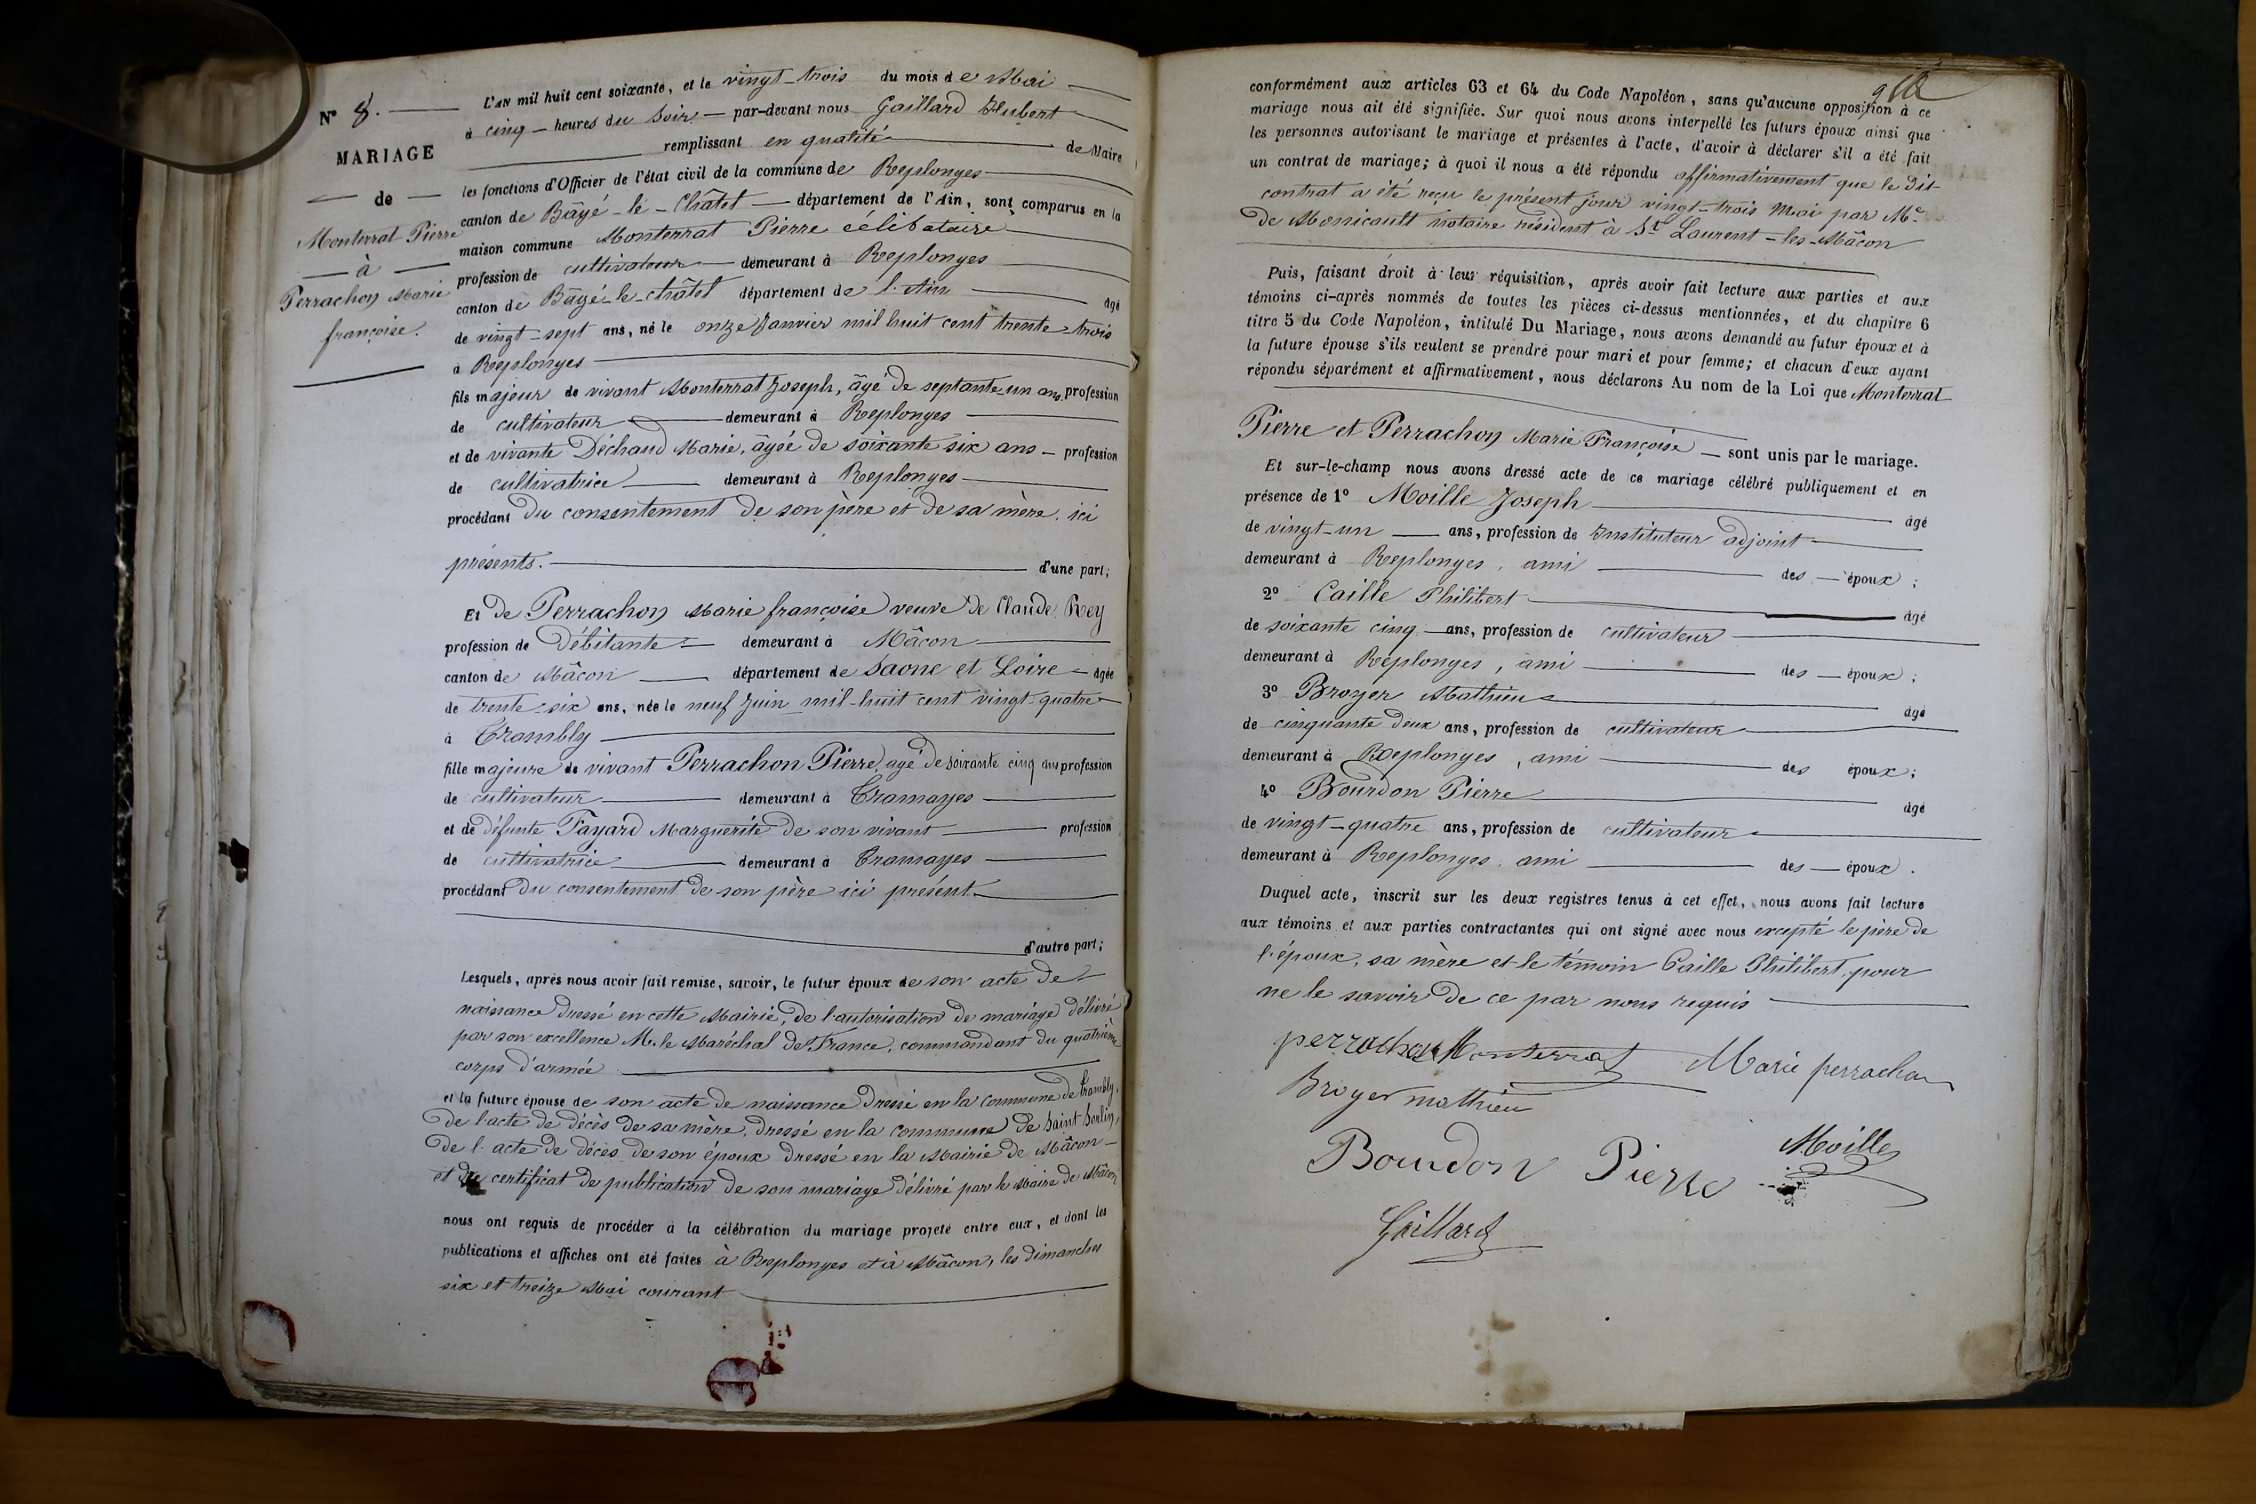 N° 8.
MARIAGE
de
Monterrat Pierre
à
Perrachon Marie
françoise.
L'AN mil huit cent soixante, et le vingt-trois du mois de Mai
à cinq heures du Soir par-devant nous Gaillard Hubert
remplissant en qualité de Maire
les fonctions d'Officier de l'état civil de la commune de Replonges
canton de Bâgé-le-Châtel département de l'Ain, sont comparus en la
maison commune Monterrat Pierre célibataire
profession de cultivateur demeurant à Replonges
canton de Bâgé-le-châtel département de l'Ain âgé
de vingt-sept ans, né le onze Janvier mil huit cent trente-trois
à Replonges
fils majeur de vivant Monterrat Joseph, âgé de septante-un ans, profession
de cultivateur demeurant à Replonges
et de vivante Déchaud Marie, âgée de soixante six ans - profession
de cultivatrice demeurant à Replonges
procédant du consentement de son père et de sa mère, ici
présents. d'une part;
Et de Perrachon Marie françoise veuve de Claude Rey
profession de Débitante demeurant à Mâcon
canton de Mâcon département de Saone et Loire âgée
de trente-six ans, née le neuf Juin mil-huit cent vingt-quatre
à Trambly
fille majeure de vivant Perrachon Pierre, âgé de soixante cinq ans profession
de cultivateur demeurant à Tramayes
et de défunte Fayard Marguerite de son vivant profession
de cultivatrice demeurant à Tramayes
procédant du consentement de son père ici présent
d'autre part;
Lesquels, après nous avoir fait remise, savoir, le futur époux de son acte de
naissance dressé en cette Mairie, de l'autorisation de mariage délivré
par son excellence M. le Maréchal de France, commandant du quatrième
corps d'armée
et la future épouse de son acte de naissance dressé en la commune de Trambly,
De l'acte de décès de sa mère, dressé en la commune de Saint
De l'acte de décès de son époux dressé en la Mairie de Mâcon
et du certificat de publication de son mariage délivré par le Maire de Mâcon
nous ont requis de procéder à la célébration du mariage projeté entre eux, et dont les
publications et affiches ont été faites à Replonges et à Mâcon, les dimanches
six et treize Mai courant
conformément aux articles 63 et 64 du Code Napoléon, sans qu'aucune opposition à ce
mariage nous ait été signifiée. Sur quoi nous avons interpellé les futurs époux ainsi que
les personnes autorisant le mariage et présentes à l'acte, d'avoir à déclarer s'il a été fait
un contrat de mariage; à quoi il nous a été répondu affirmativement que le dit
contrat a été reçu le présent jour vingt-trois Mai par Me
De Monicault notaire résident à St Laurent-les-Mâcon
Puis, faisant droit à leur réquisition, après avoir fait lecture aux parties et aux
témoins ci-après nommés de toutes les pièces ci-dessus mentionnées, et du chapitre 6
titre 5 du Code Napoléon, intitulé Du Mariage, nous avons demandé au futur époux et à
la future épouse s'ils veulent se prendre pour mari et pour femme; et chacun d'eux ayant
répondu séparément et affirmativement, nous déclarons Au nom de la Loi que Monterrat
Pierre et Perrachon Marie Françoise sont unis par le mariage.
Et sur-le-champ nous avons dressé acte de ce mariage célébré publiquement et en
présence de 1° Moille Joseph âgé
de vingt-un ans, profession de Instituteur adjoint
demeurant à Replonges, ami des époux;
2° Caille Philibert âgé
de soixante cinq ans, profession de cultivateur
demeurant à Replonges, ami des époux;
3° Broyer Mathieu âgé
de cinquante deux ans, profession de cultivateur
demeurant à Replonges, ami des époux;
4° Bourdon Pierre âgé
de vingt-quatre ans, profession de cultivateur
demeurant à Replonges, ami des époux.
Duquel acte, inscrit sur les deux registres tenus à cet effet, nous avons fait lecture
aux témoins et aux parties contractantes qui ont signé avec nous excepté le père de
l'époux, sa mère et le témoin Caille Philibert, pour
ne le savoir de ce par nous requis
perrachon Monterrat Marie perrachon
Broyer mathieu
Bourdon Pierre Moille
Gaillard